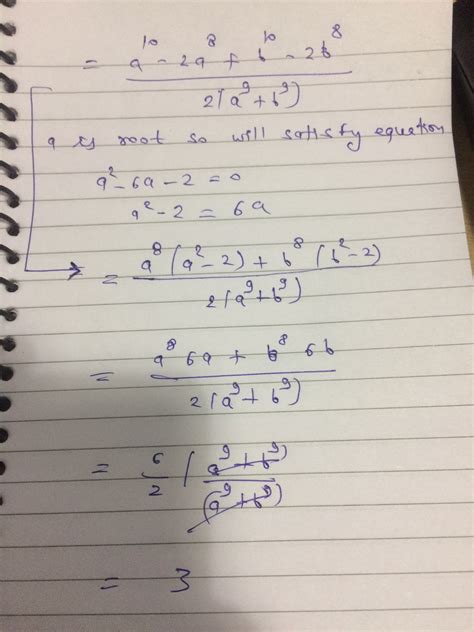 = a^10 - 2a^8 + b^10 - 2b^8 / 2(a^9 + b^9)
a is root so will satisfy equation
a^2 - 6a - 2 = 0
a^2 - 2 = 6a
= a^8 (a^2 - 2) + b^8 (b^2 - 2) / 2(a^9 + b^9)
= a^8 6a + b^8 6b / 2(a^9 + b^9)
= 6/2 ( (a^9 + b^9) / (a^9 + b^9)
= 3